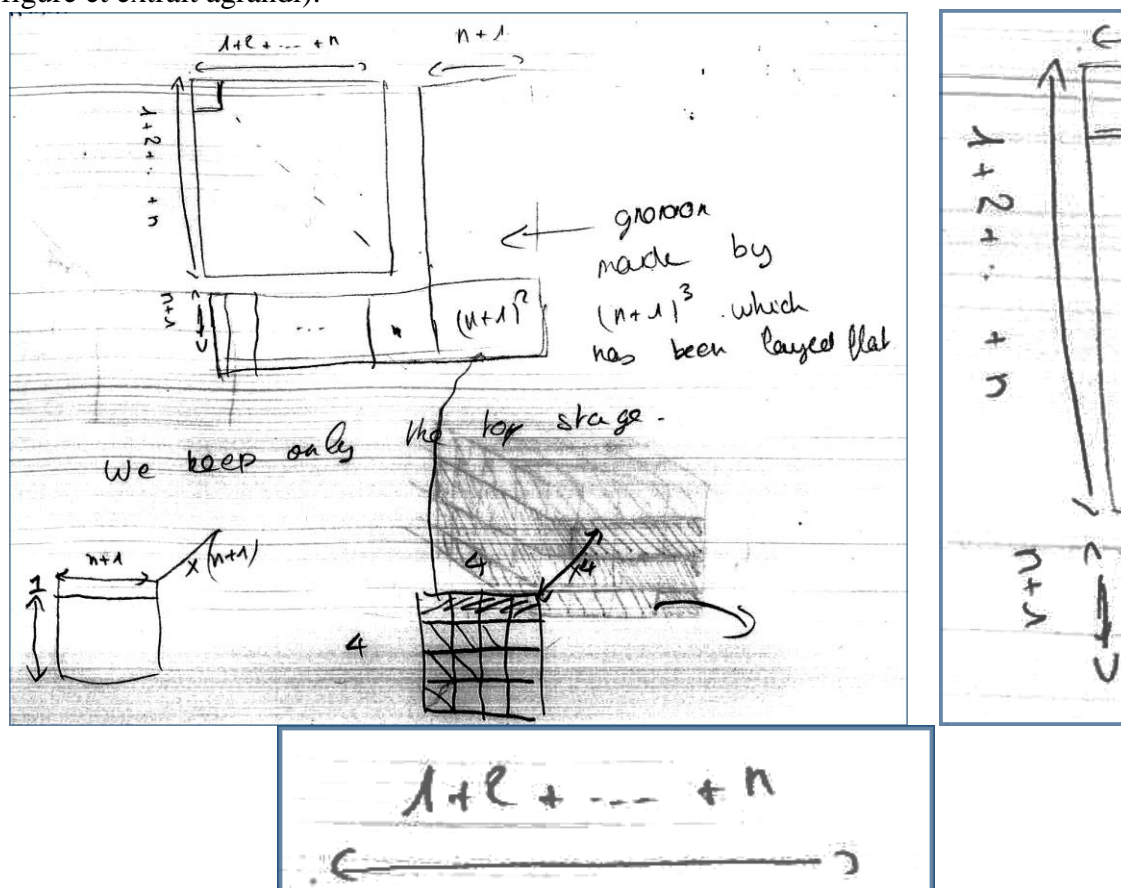 figure et extrait agrandi).
1+2+....+n
n+1
1+2+..+n
n+1
...
n
(n+1)²
gnomon
made by
(n+1)³ which
has been layed flat
We keep only the top stage.
n+1
x(n+1)
1
4
x4
4
1+2+..+n
n+1
1+2+....+n